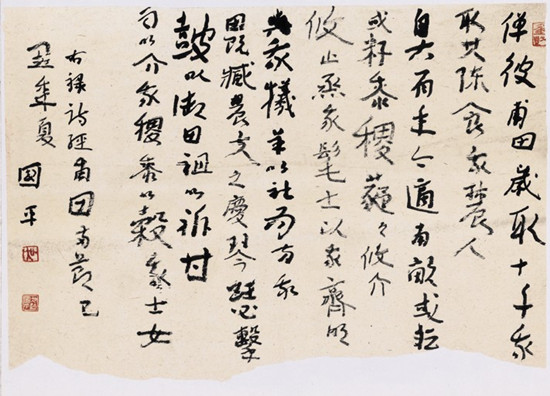 倬彼甫田歲取十千我
取其陈食我農人
自古有年今適南畝或耘
或耔黍稷薿々攸介
攸止烝我髦士以我齊明
與我犧羊以社以方我
田既臧農夫之慶琴瑟擊
鼓以御田祖以祈甘
雨以介我稷黍以穀我士女
右録詩經甫田節己
丑年夏 國平